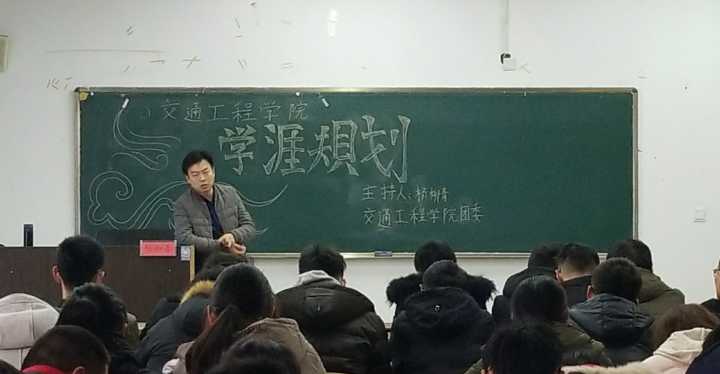 交通工程学院
学涯规划
主持人:杨柳青
交通工程学院团委